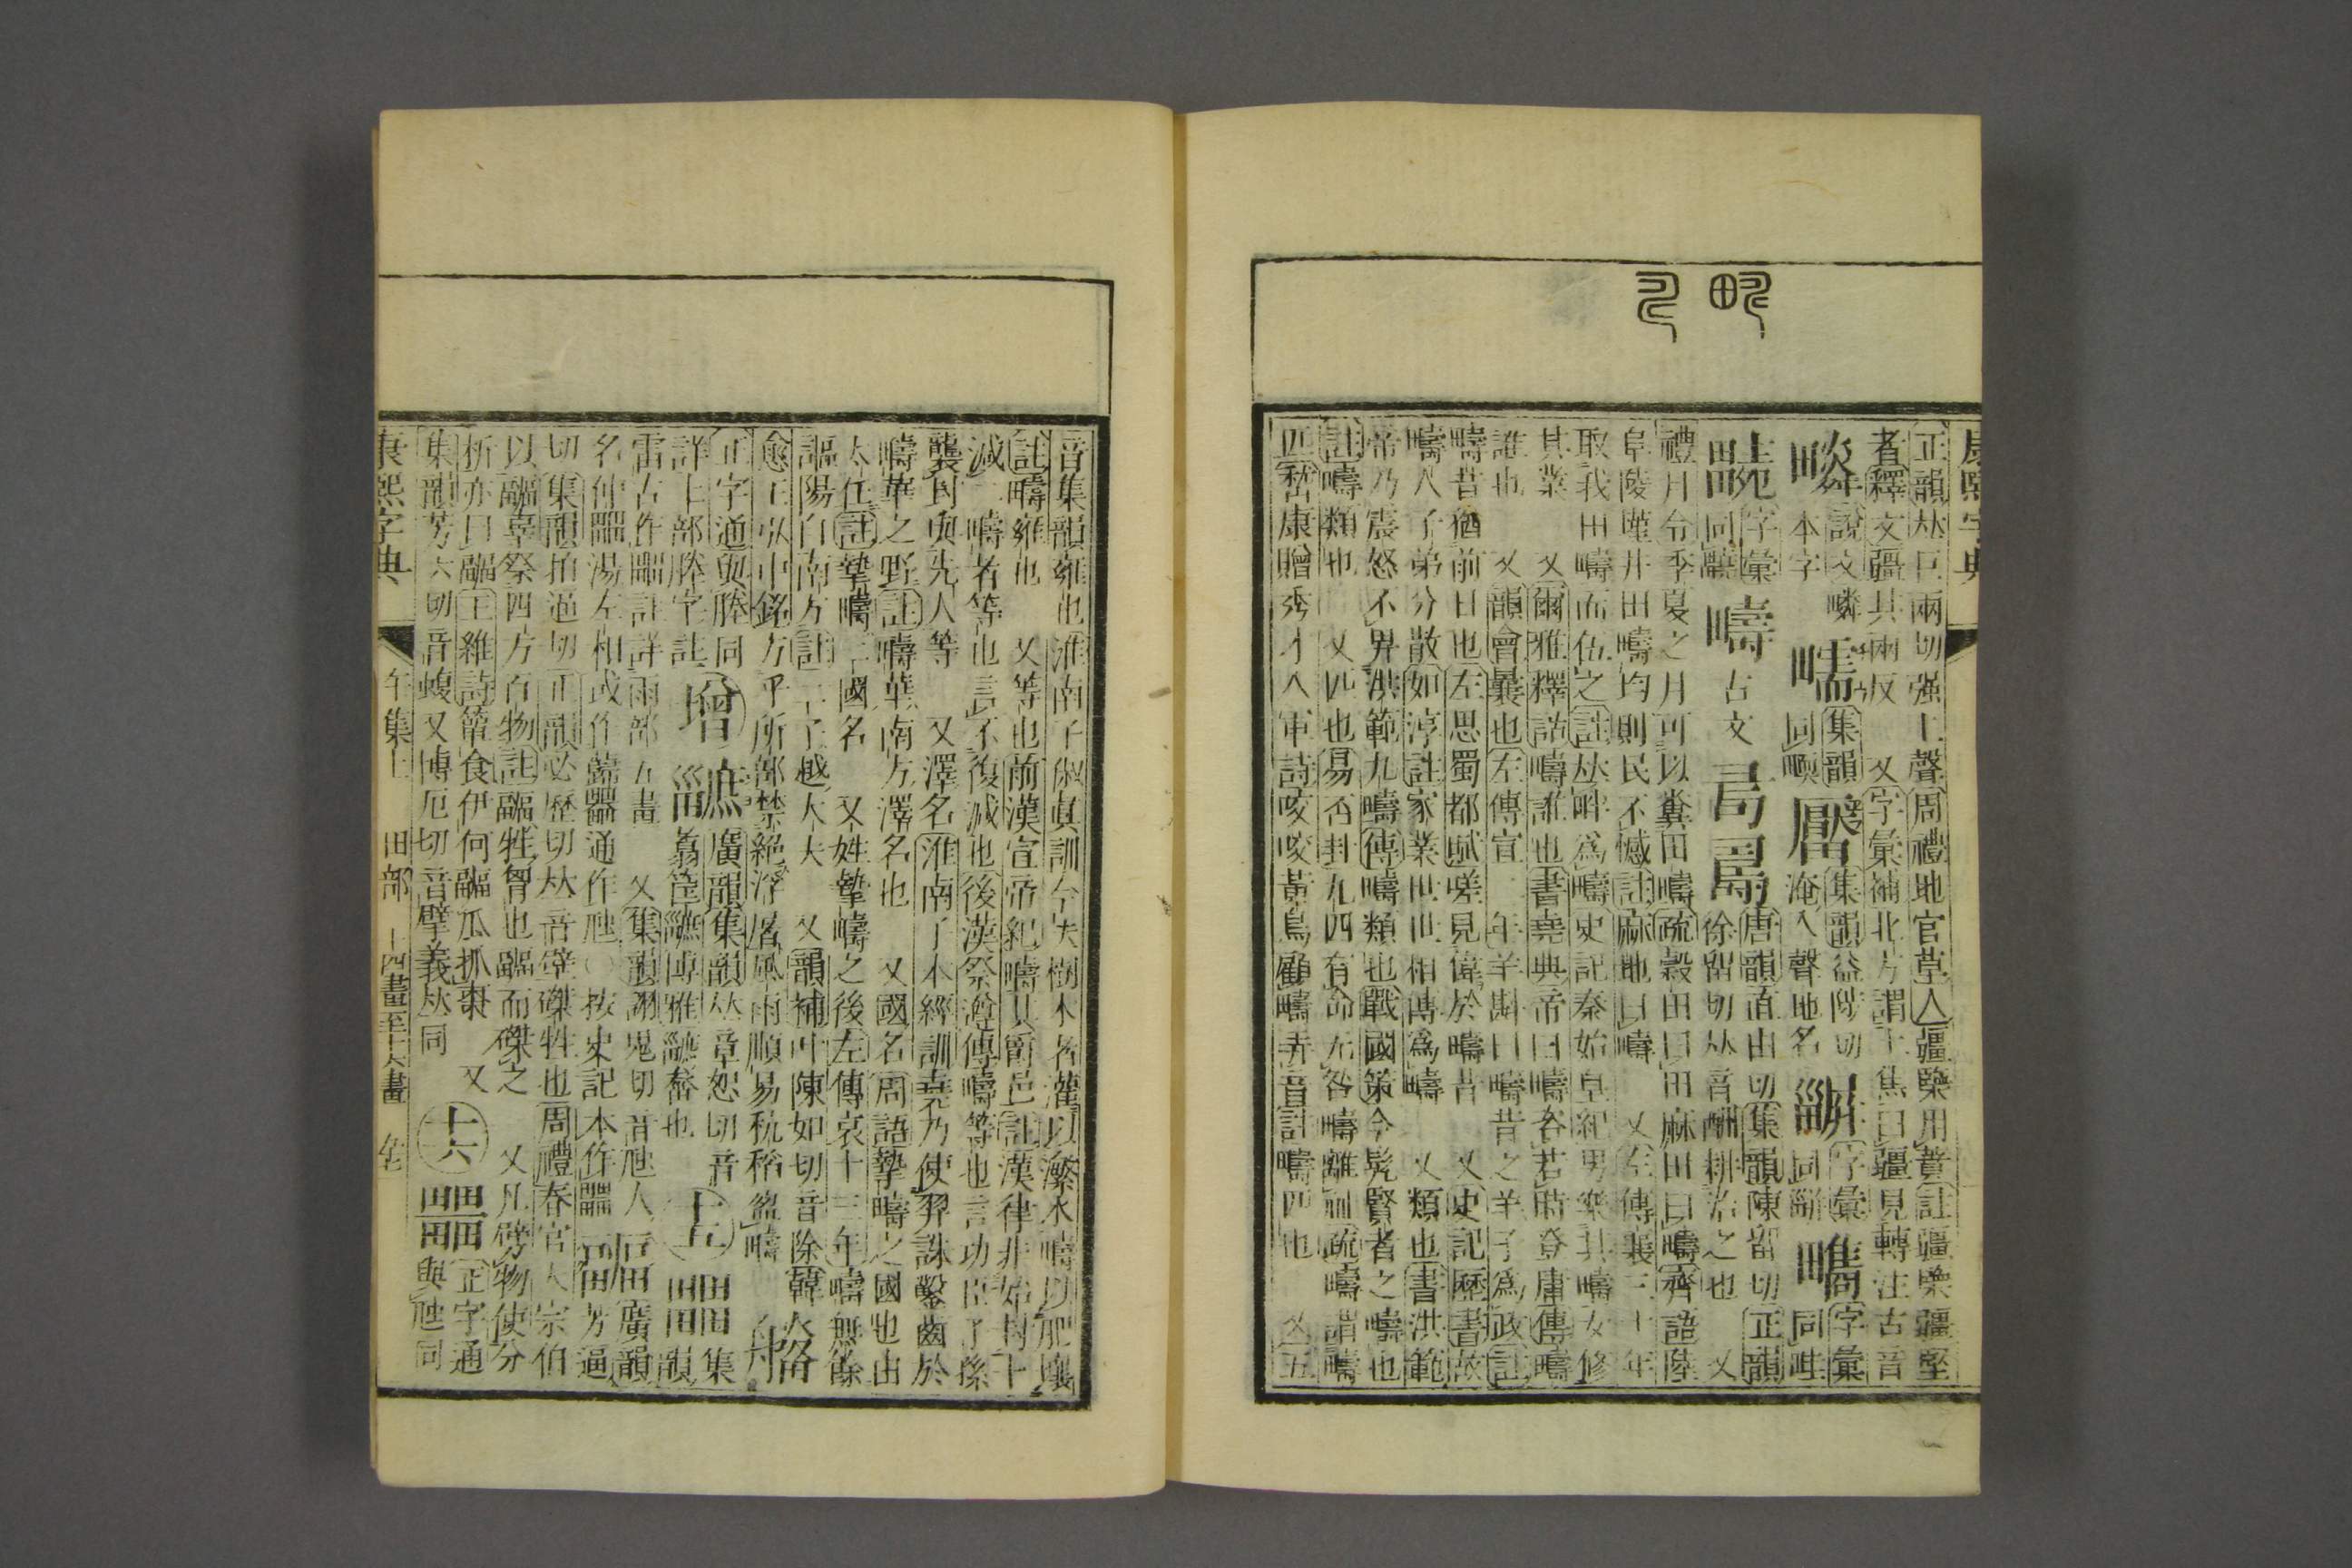 正韻𠀤巨兩切强上聲周禮地官草人疆㯺用蕡註疆㯺疆堅
者釋文疆其兩反 又字彙補北方謂土焦曰疆見轉注古音
本字 說文 疄
同 集韻
集韻益 切
淹入聲地名 字彙 同
字彙 同畦
字彙 同
疇 古文 唐韻直由切集韻陳留切正韻
徐留切𠀤音酬耕治之也 又
禮月令季夏之月可以糞田疇疏穀田曰田麻田曰疇齊語陸
阜陵墐井田疇均則民不憾註麻地曰疇 又左傳襄三十年
取我田疇而伍之註𠀤畔爲疇史記秦始皇紀男樂其疇女修
其業 又爾雅釋詁疇誰也書堯典帝曰疇咨若時登庸傳疇
誰也 又韻會曩也左傳宣二年羊斟曰疇昔之羊子爲政註
疇昔猶前日也左思蜀都賦嗟見偉於疇昔 又史記歷書故
疇人子弟分散如淳註家業世世相傳爲疇 又類也書洪範
帝乃震怒不畀洪範九疇傳疇類也戰國策今髡賢者之疇也
註疇類也 又匹也易否卦九四有命无咎疇離祉疏疇謂疇
匹嵆康贈秀才入軍詩咬咬黃鳥顧疇弄音註疇匹也 又五
音集韻雍也淮南子俶眞訓今夫樹木者灌以瀿水疇以肥壤
註疇雍也 又等也前漢宣帝紀疇其爵邑註漢律非始封十
減二疇者等也言不復減也後漢祭遵傳疇等也言功臣子孫
襲封與先人等 又澤名淮南子本經訓堯乃使羿誅鑿齒於
疇華之野註疇華南方澤名也 又國名周語摯疇之國也由
太任註摯疇二國名 又姓摯疇之後左傳哀十三年疇無餘
謳陽自南方註二子越大夫 又韻補叶陳如切音除韓
愈王弘中銘方乎所部禁絕浮屠風雨順易秔稻盈疇
正字通與塍同
詳土部塍字註 增 廣韻集韻𠀤章恕切音
翥筐 博雅 畚也 十五 畾畾 集韻
雷古作畾註詳雨部五畫 又集韻詡鬼切音虺人
名仲畾湯左相或作蘬 通作虺○按史記本作 疈 廣韻芳逼
切集韻拍逼切正韻必歷切𠀤音壁磔牲也周禮春官大宗伯
以疈辜祭四方百物註疈牲胷也疈而磔之 又凡劈物使分
析亦曰疈王維詩簞食伊何疈瓜抓棗 又
集韻芳六切音蝮又博厄切音擘義𠀤同 十六 正字通
與虺同
康熙字典 午集上 田部 十四畫至十六畫
康熙字典